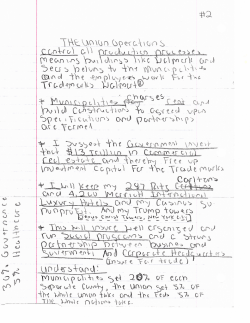 #2
THE Union Operations
Control all production processes
Meaning buildings like Walmart and
Sears belong to the municipalities
and the employees work for the
Trademarks Walmart®
* Municipalities charges and
build Constructions to agreed upon
Specifications and Partnerships
are formed
* I suggest the Government invest
$13 Trillion in Commercial
Real estate and thereby free up
investment Capital for the Trademarks
* I will keep my 287 Ritz Carltons
and 4,260 Marriott International
Luxury hotels and my Casinos
nonprofit. And my Trump towers
* This will insure well organized and
run Social programs and a strong
Partnership between business and
Government. And Corporate Headquarters
Understand:
Municipalities get 20% of each
Separate County, the Union get 5% of
the whole Union take and the Feds 5% of
the whole nations take.
30% Governance
5% Healthcare